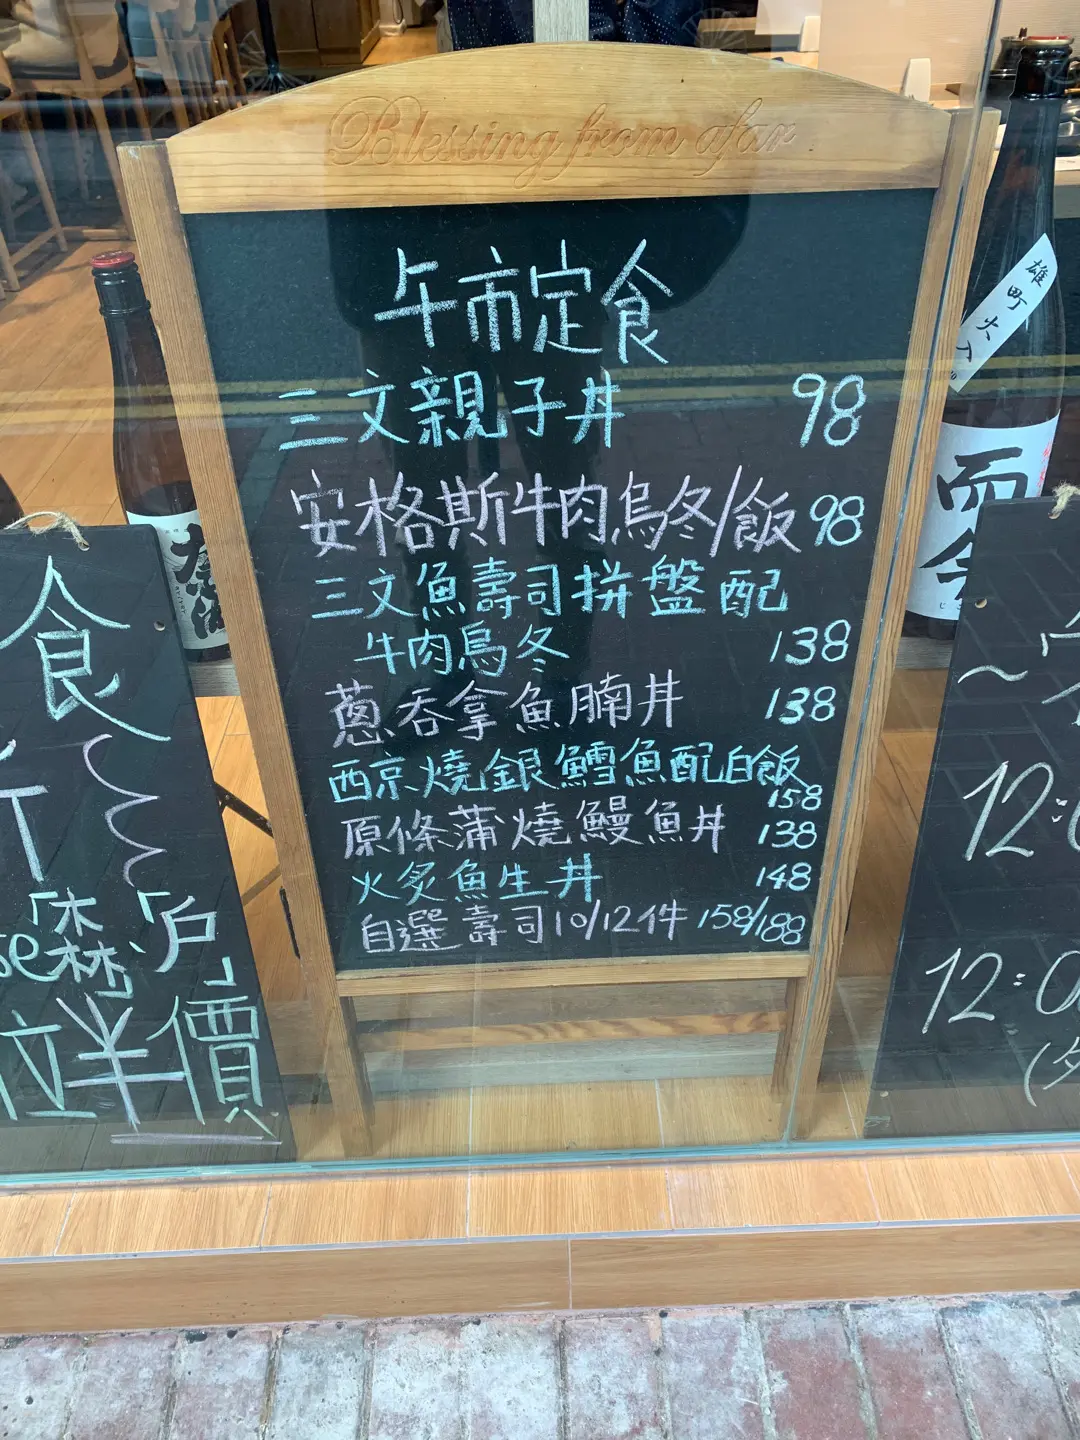 Blessing from afar
午市定食
三文親子丼 98
安格斯牛肉烏冬/飯 98
三文魚壽司拼盤配
牛肉烏冬 138
蔥吞拿魚腩丼 138
西京燒銀鱈魚配白飯 158
原條蒲燒鰻魚丼 138
火炙魚生丼 148
自選壽司10/12件 158/188
食
「森戶」
位半價
雄町火入
而今
12:0
12:0